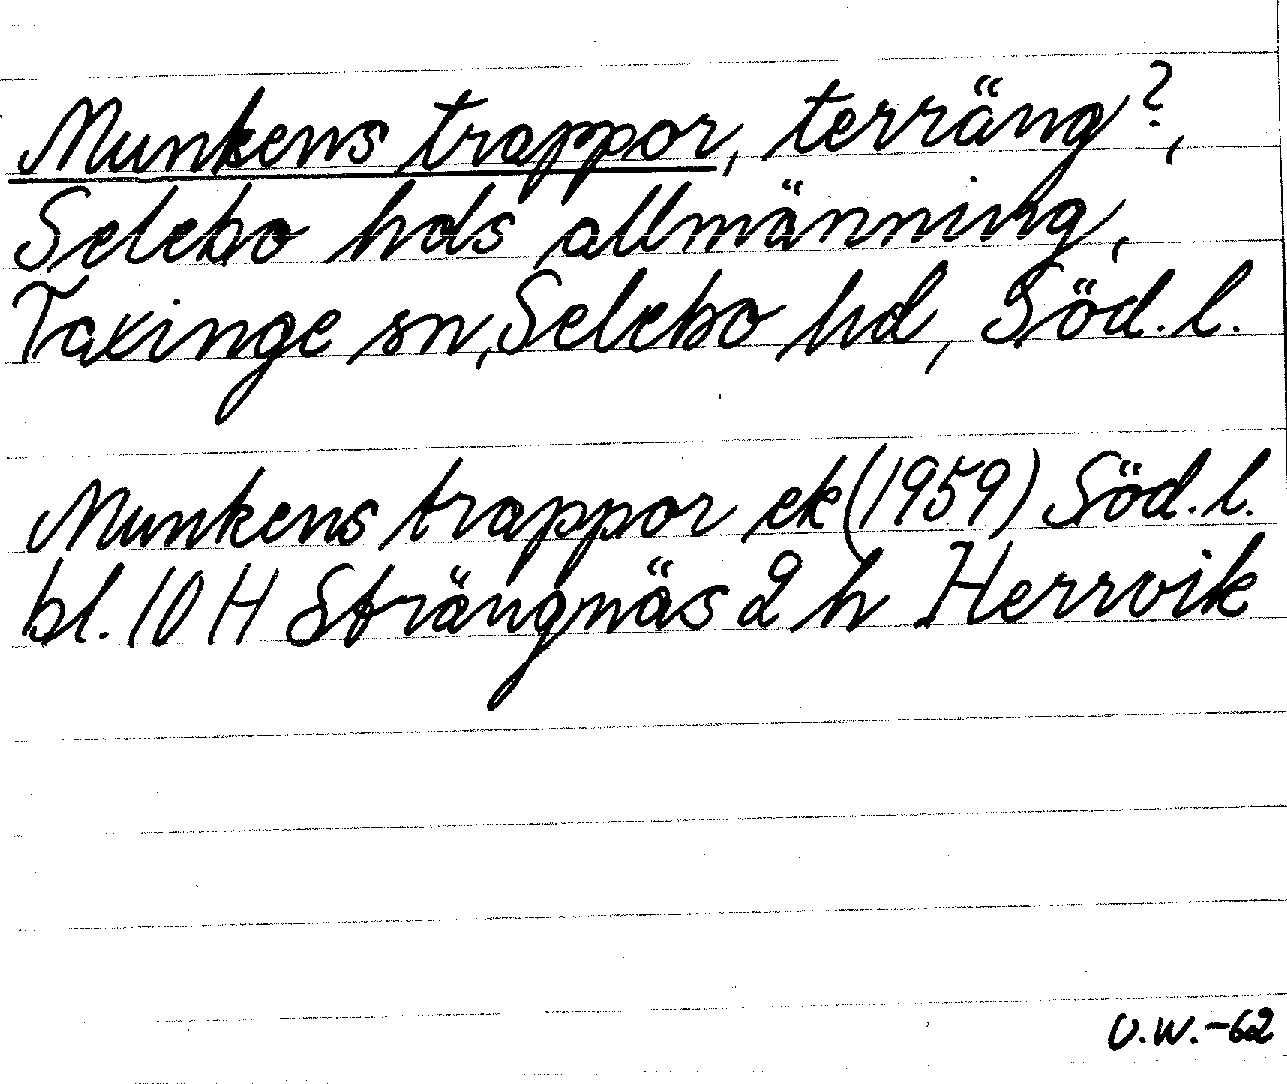 Munkens trappor, terräng?,
Selebo hds allmänning,
Taxinge sn, Selebo hd, Söd. l.
Munkens trappor ek (1959) Söd. l.
bl. 10 H Strängnäs 2 h Herrvik
O.W.-62